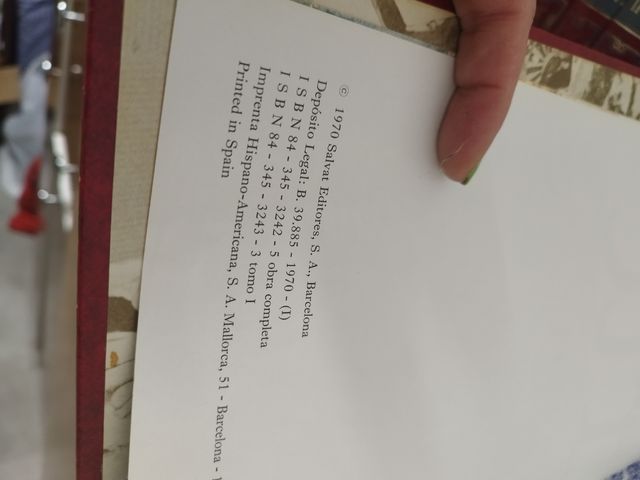 © 1970 Salvat Editores, S. A., Barcelona
Depósito Legal: B. 39.885 - 1970 - (I)
I S B N 84 - 345 - 3242 - 5 obra completa
I S B N 84 - 345 - 3243 - 3 tomo I
Imprenta Hispano-Americana, S. A. Mallorca, 51 - Barcelona -
Printed in Spain